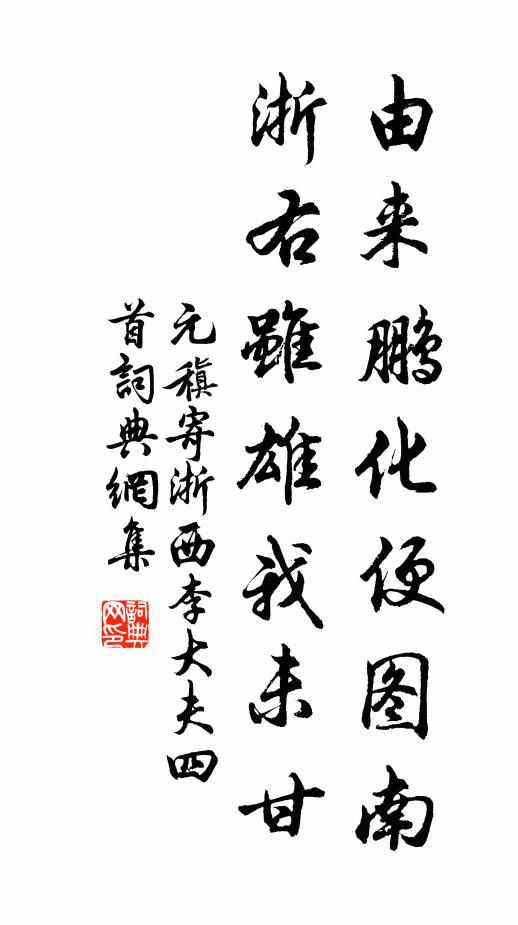 由来鹏化便图南
浙右雖雄我未甘
元稹寄浙西李大夫四
首詞典網集
詞典
网印